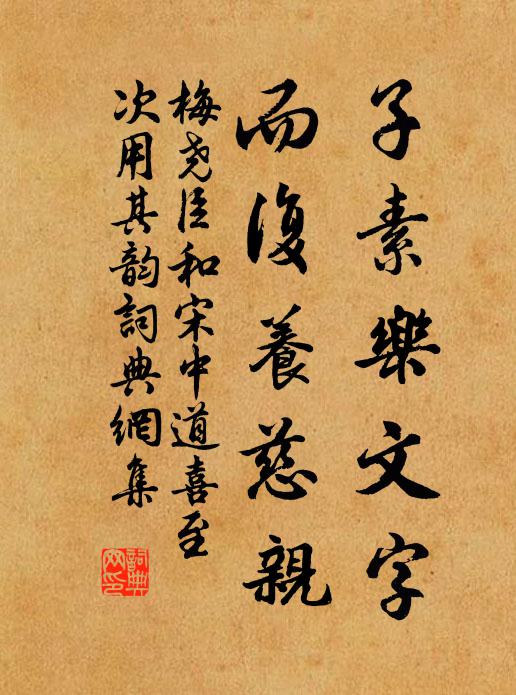 子素樂文字
而復養慈親
梅尧臣和宋中道喜至
次用其韵詞典網集
詞典網印